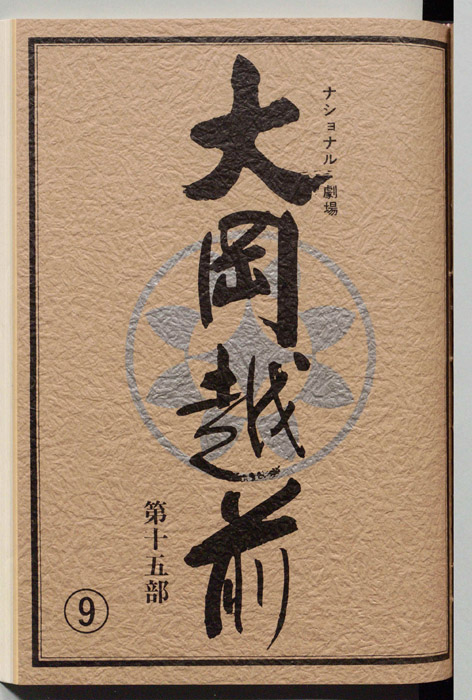 ナショナル劇場
大岡越前
第十五部
⑨